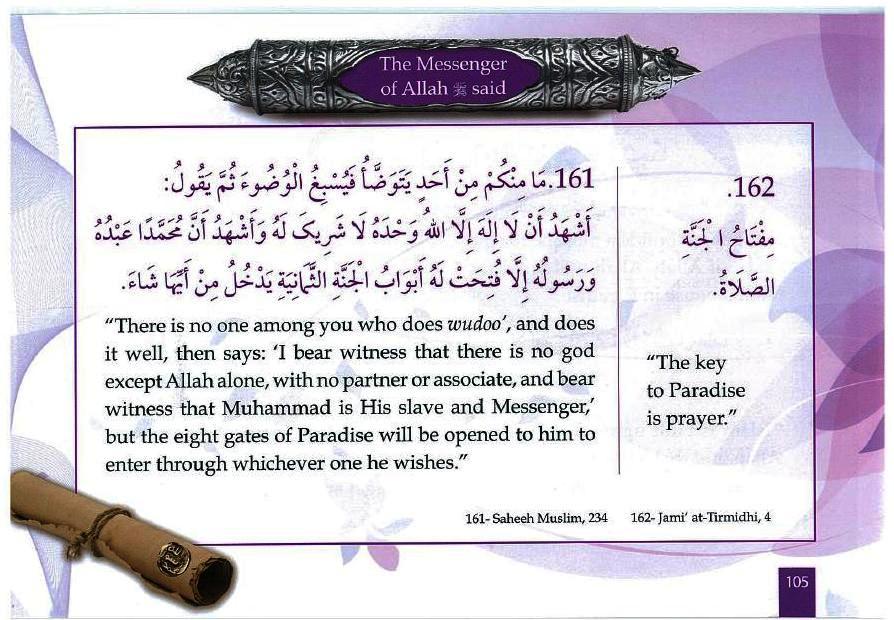 The Messenger
of Allah ﷺ said
161.مَا مِنْكُمْ مِنْ أَحَدٍ يَتَوَضَّأُ فَيُسْبِغُ الْوُضُوءَ ثُمَّ يَقُولُ:
أَشْهَدُ أَنْ لَا إِلَهَ إِلَّا اللهُ وَحْدَهُ لَا شَرِيكَ لَهُ وَأَشْهَدُ أَنَّ مُحَمَّدًا عَبْدُهُ
وَرَسُولُهُ إِلَّا فُتِحَتْ لَهُ أَبْوَابُ الْجَنَّةِ الثَّمَانِيَةِ يَدْخُلُ مِنْ أَيِّهَا شَاءَ.
“There is no one among you who does wudoo’, and does
it well, then says: ‘I bear witness that there is no god
except Allah alone, with no partner or associate, and bear
witness that Muhammad is His slave and Messenger,’
but the eight gates of Paradise will be opened to him to
enter through whichever one he wishes.”
162.
مِفْتَاحُ الْجَنَّةِ
الصَّلَاةُ.
“The key
to Paradise
is prayer.”
161- Saheeh Muslim, 234 162- Jami’ at-Tirmidhi, 4
105